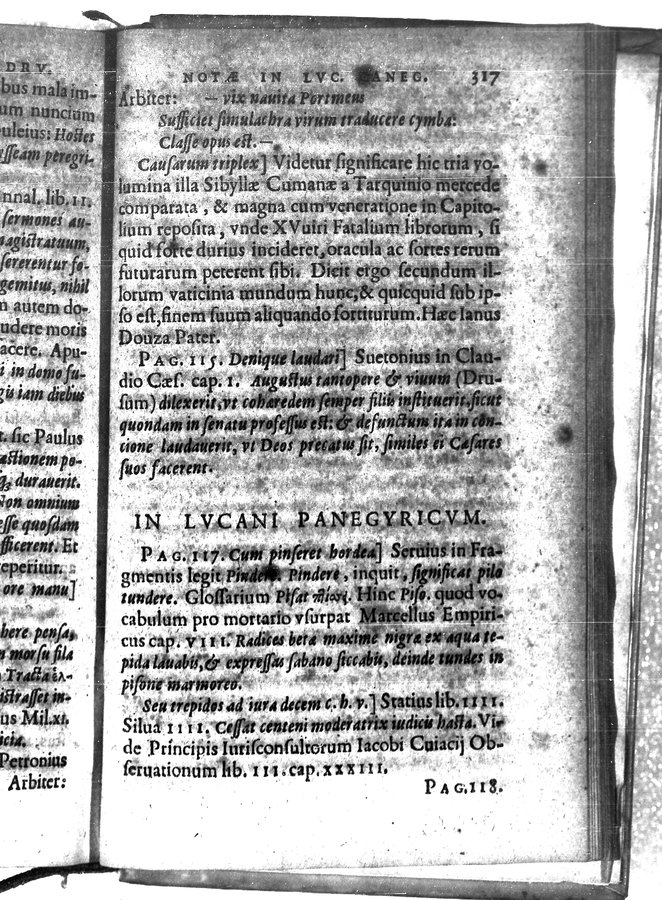 DRV.
bus mala im-
um nunctum
uleius: Hostes
usseam peregri-
nnal. lib. 11.
sermones au-
magistratuum,
sererentur so-
gemitus, nihil
m autem do-
udere moris
acere. Apu-
i in domo fu-
iam diebus
t. sic Paulus
æstionem po-
durauerit.
Non omnium
esse quosdam
fficerent. Et
eperitur.
ore manu]
here pensa,
n morsu fila
Tracta
istrasset in-
us Mil. xi.
icia.
Petronius
Arbiter:
NOTÆ IN LVC. PANEG. 317
Arbiter: — vix nauita Portmeus
Sufficiet simulachra virum traducere cymba:
Classe opus est. —
Causarum triplex] Videtur significare hic tria vo-
lumina illa Sibyllæ Cumanæ a Tarquinio mercede
comparata, & magna cum veneratione in Capito-
lium reposita, vnde XVuiri Fatalium librorum, si
quid forte durius incideret, oracula ac sortes rerum
futurarum peterent sibi. Dicit ergo secundum il-
lorum vaticinia mundum hunc, & quicquid sub ip-
so est, finem suum aliquando sortiturum. Hæc Ianus
Douza Pater.
PAG. 115. Denique laudari] Suetonius in Clau-
dio Cæs. cap. 1. Augustus tantopere & viuum (Dru-
sum) dilexerit, vt coharedem semper filiis instituerit, sicut
quondam in senatu professus est: & defunctum ita in con-
cione laudauerit, vt Deos precatus sit, similes ei Cæsares
suos facerent.
IN LVCANI PANEGYRICVM.
PAG. 117. Cum pinseret hordea] Seruius in Fra-
gmentis legit Pinderet. Pindere, inquit, significat pilo
tundere. Glossarium Pisat Hinc Piso. quod vo
cabulum pro mortario vsurpat Marcellus Empiri-
cus cap. VIII. Radices betæ maxime nigræ ex aqua te-
pida lauabis, & expressas sabano siccabis, deinde tundes in
pisone marmoreo.
Seu trepidos ad iura decem c. h. v.] Statius lib. 1111.
Silua 1111. Cessat centeni moderatrix iudicis hasta. Vi-
de Principis Iurisconsultorum Iacobi Cuiacij Ob-
seruationum lib. 111. cap. xxxiii.
PAG. 118.